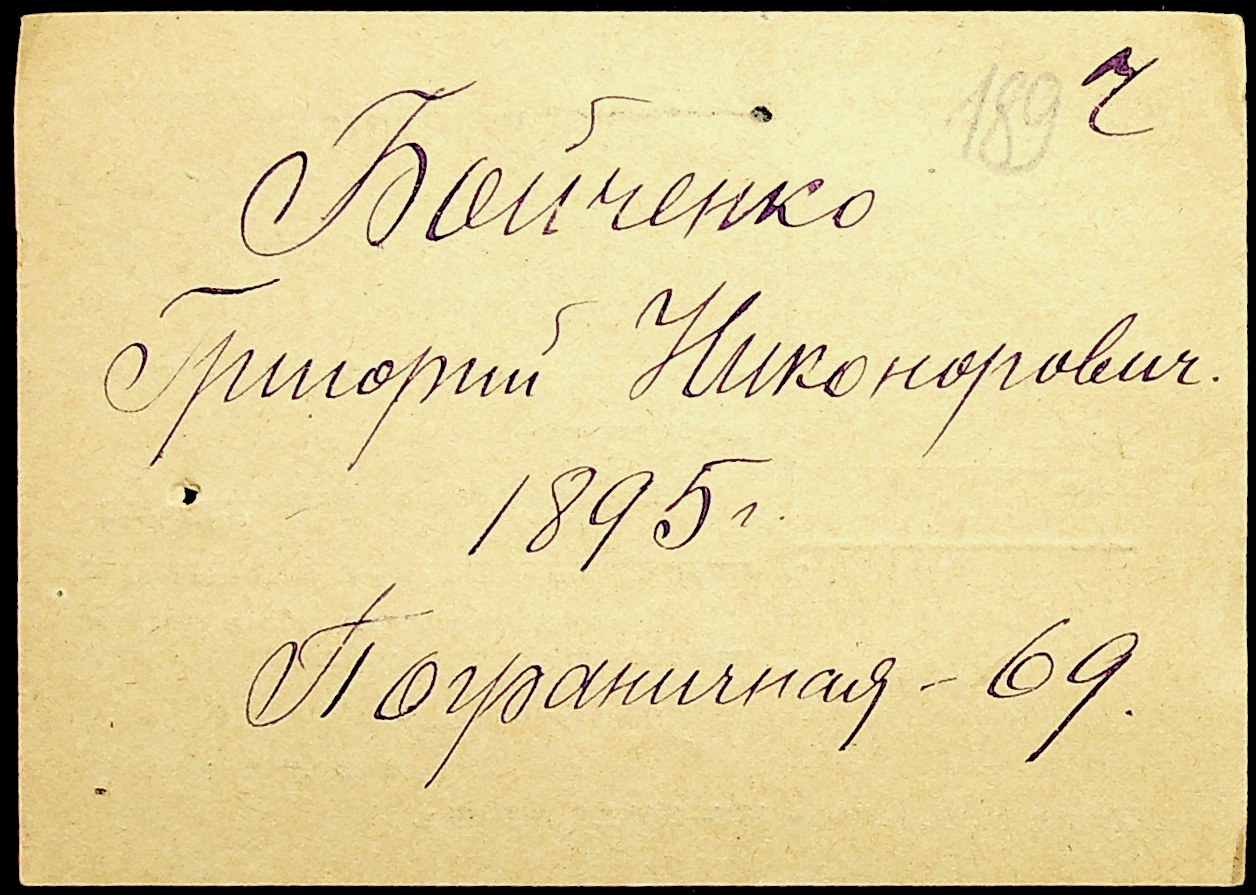 189
Бойченко
Григорий Никонорович.
1895 г.
Пограничная - 69.